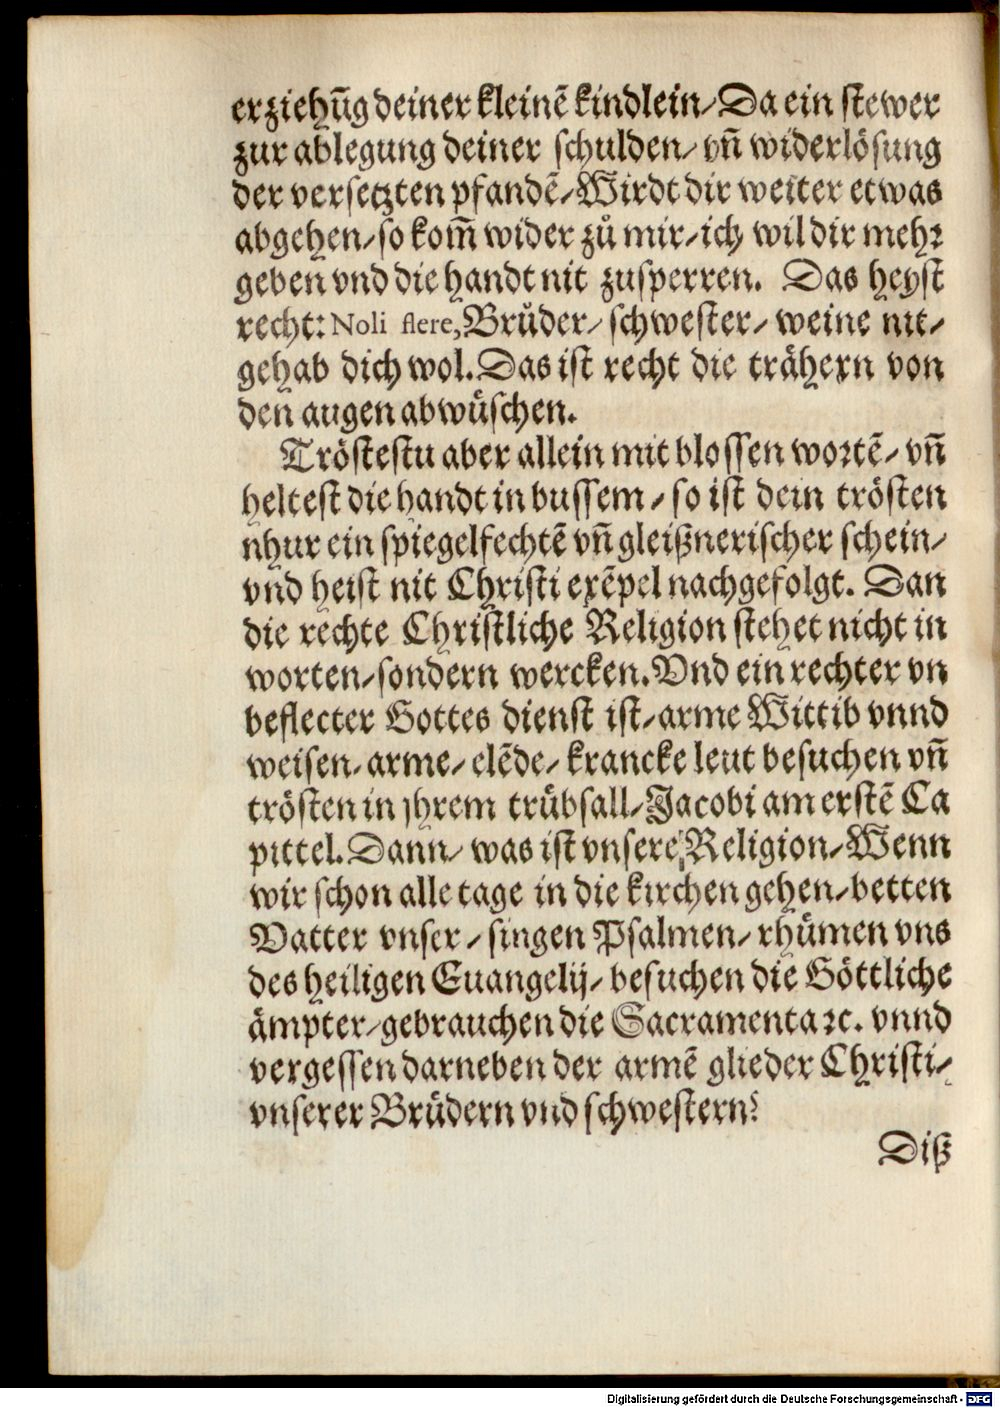 erziehūg deiner kleinē kindlein/ Da ein stewer
zur ablegung deiner schulden/ vn̄ widerlösung
der versetzten pfandē/ Wirdt dir weiter etwas
abgehen/ so kom̄ wider zů mir/ ich wil dir mehr
geben vnd die handt nit zusperren. Das heyst
recht: Noli flere, Brůder/ schwester/ weine nit/
gehab dich wol. Das ist recht die trähern von
den augen abwüschen.
Tröstestu aber allein mit blossen wortē/ vn̄
heltest die handt in bussem/ so ist dein trösten
nhur ein spiegelfechtē vn̄ gleißnerischer schein/
vnd heist nit Christi exēpel nachgefolgt. Dan
die rechte Christliche Religion stehet nicht in
worten/ sondern wercken. Vnd ein rechter vn
beflecter Gottes dienst ist/ arme Wittib vnnd
weisen/ arme/ elēde/ krancke leut besuchen vn̄
trösten in jhrem trübsall/ Jacobi am erstē Ca
pittel. Dann/ was ist vnsere Religion/ Wenn
wir schon alle tage in die kirchen gehen/ betten
Vatter vnser/ singen Psalmen/ rhümen vns
des heiligen Euangelij/ besuchen die Göttliche
ämpter/ gebrauchen die Sacramenta ꝛc. vnnd
vergessen darneben der armē glieder Christi/
vnserer Brüdern vnd schwestern?
Diß
Digitalisierung gefördert durch die Deutsche Forschungsgemeinschaft - DFG